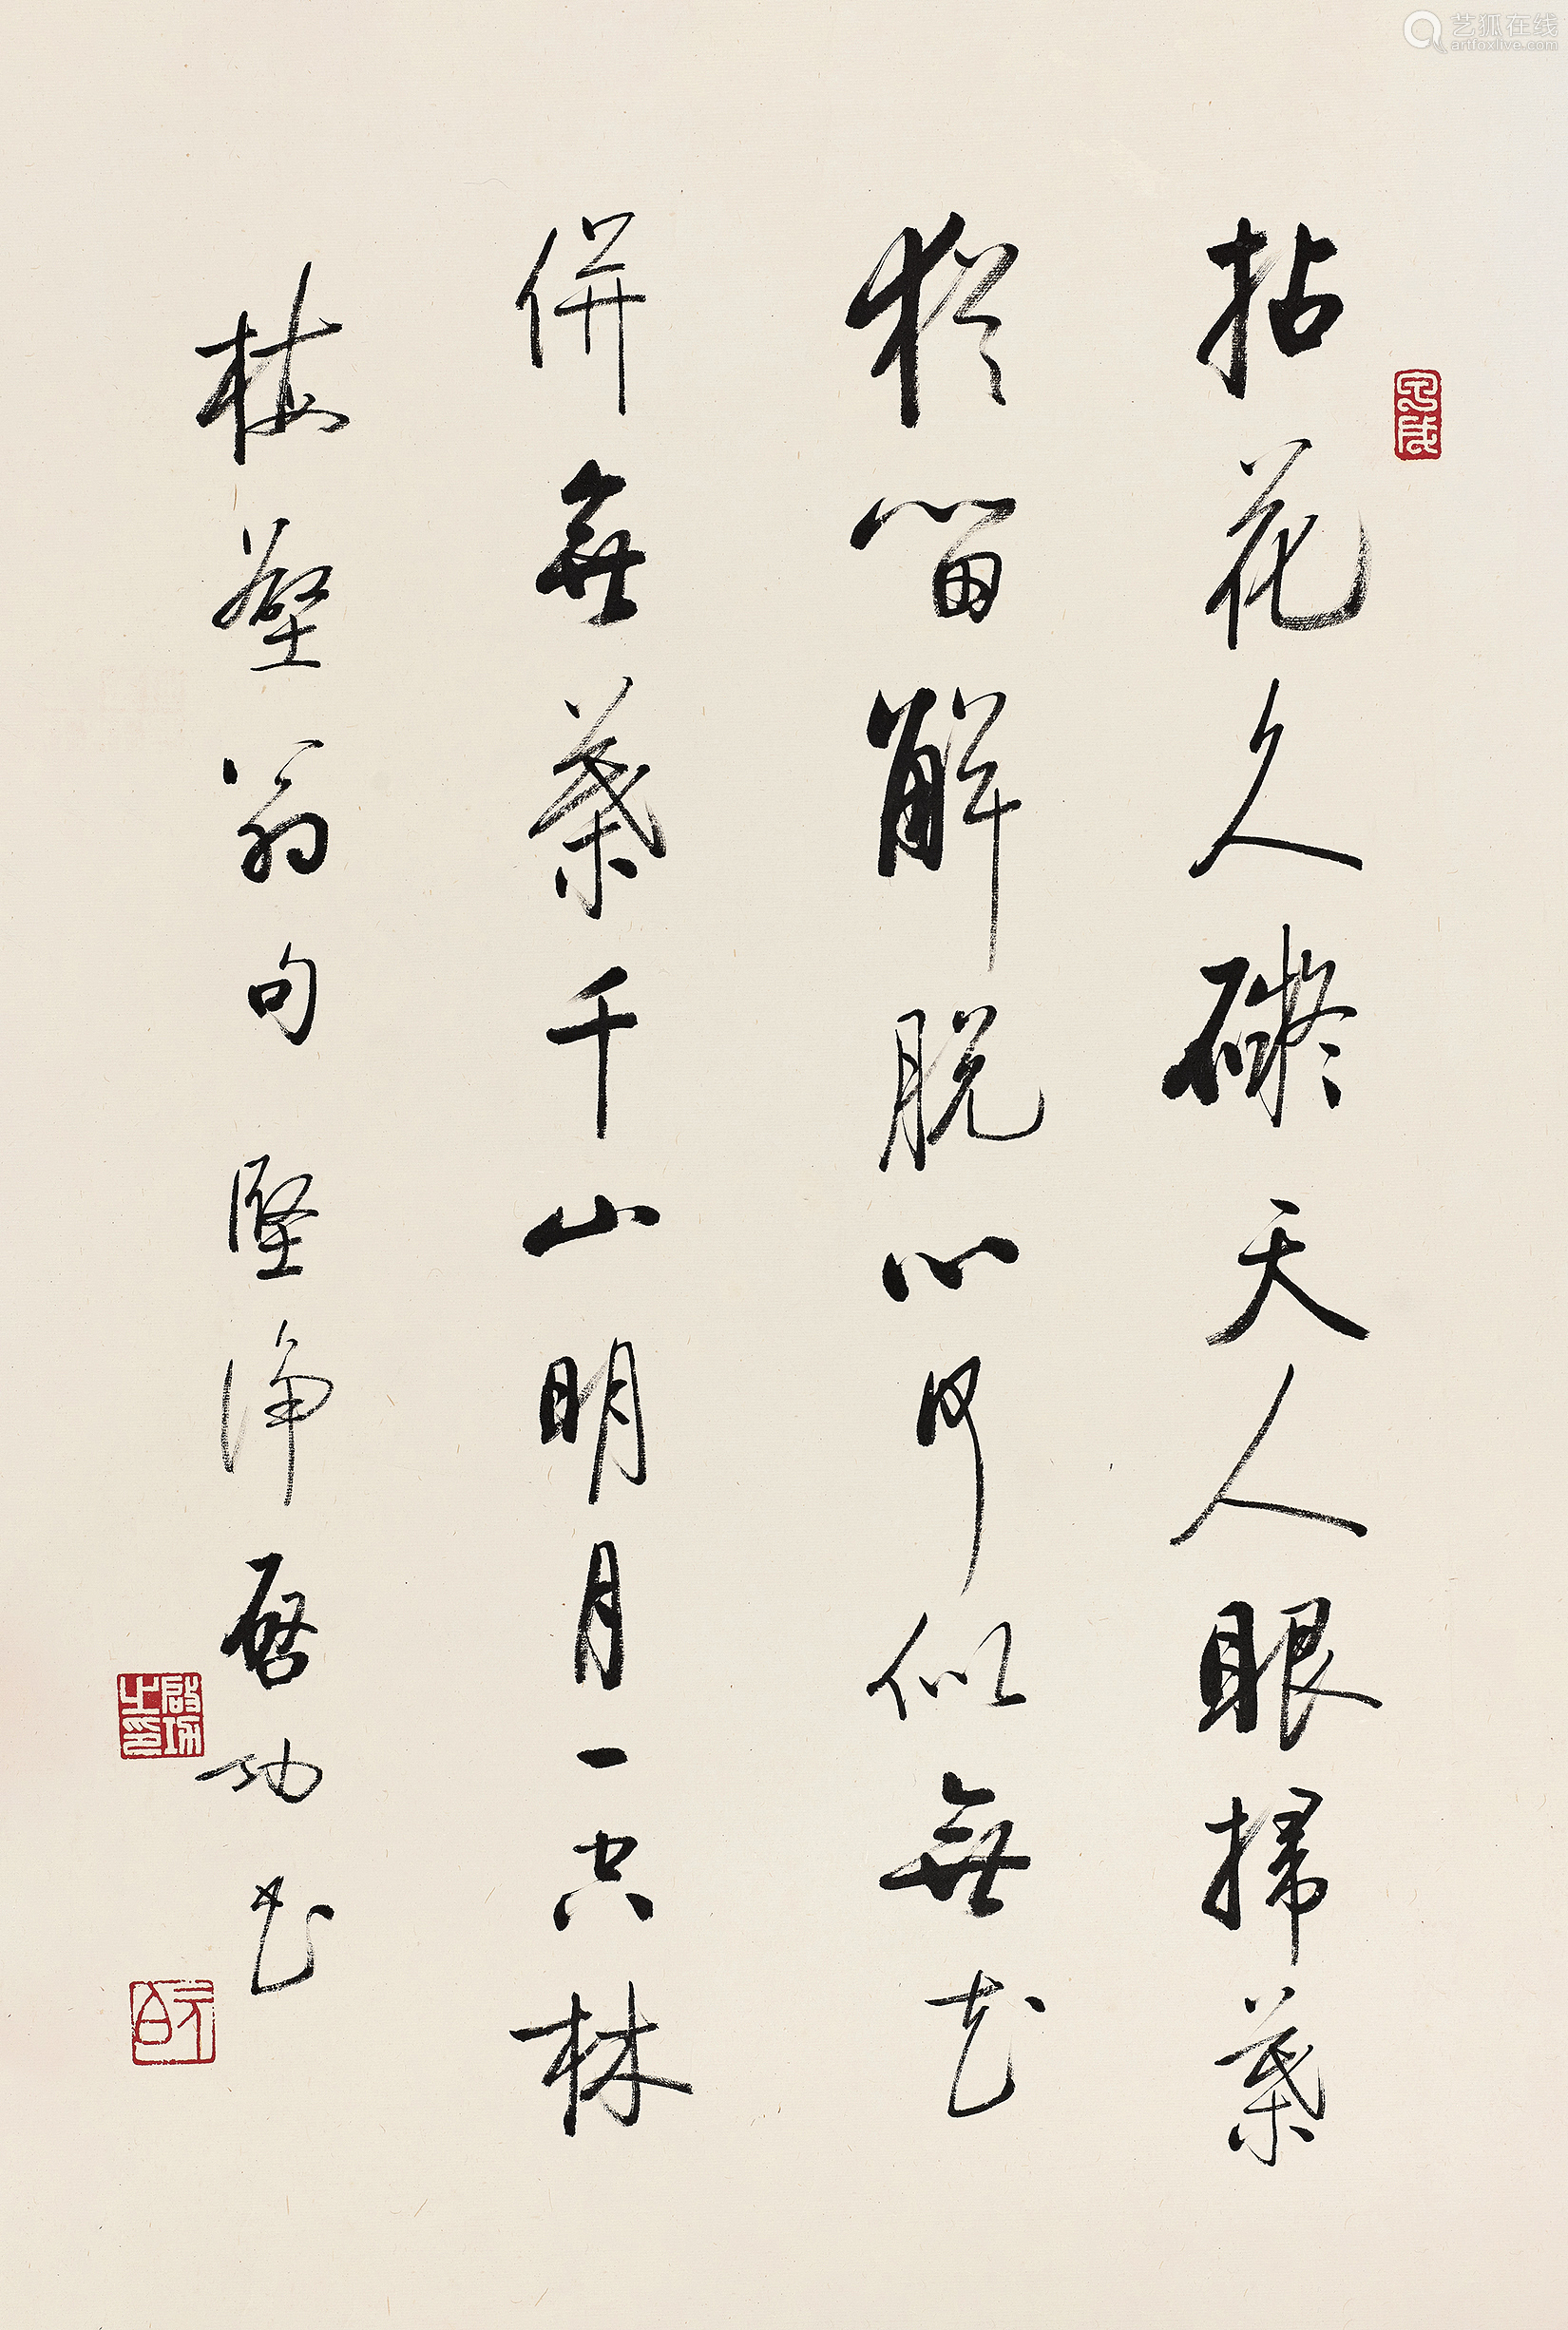 拈花久礙天人眼掃葉
猶留解脫心何似無花
併無葉千山明月一空林
梅壑翁句 堅淨啓功書
啟功之印
元白
艺狐在线
artfoxlive.com